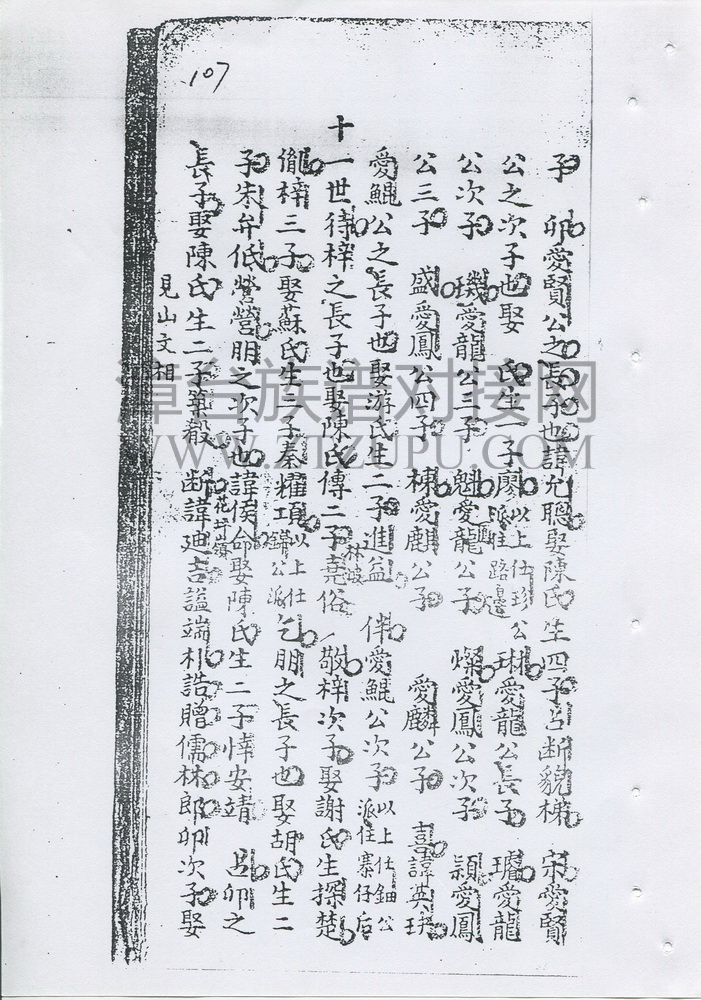 107
子 卯愛賢公之長子也諱允聰娶陳氏生四子呂断貌梯 宋愛賢
公之次子也娶 氏生一子廖以上仕珍公派住路邊 琳愛龍公長子 璿愛龍
公次子 璣愛龍公三子 魁愛龍公子 燦愛鳳公次子 穎愛鳳
公三子 盛愛鳳公四子 棟愛麒公子 愛麟公子 喜諱英玞
愛鯤公之長子也娶游氏生二子進益 伴愛鯤公次子以上仕鈿公派住寨仔后
十一世待梓之長子也娶陳氏傳二子堯俗 敬梓次子娶謝氏生探楚
衞梓三子娶蘇氏生二子秦耀項以上仕鏽公派 乞朋之長子也娶胡氏生二
子朱弁低營營朋之次子也諱侯命娶陳氏生二子悻安靖 呂卯之
長子娶陳氏生二子箄毅 断諱廸吉謚端朴誥贈儒林郎卯次子娶
林坡
花圩鎮
見山文相
漳台族谱对接网
WWW.ZTZUPU.COM